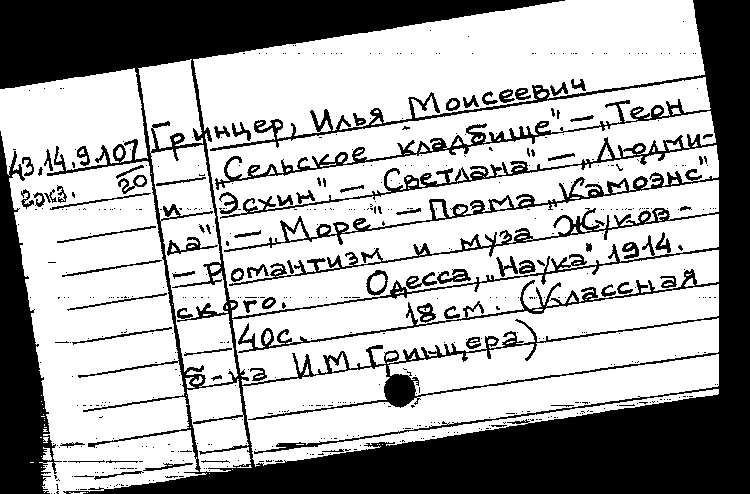 Гринцер, Илья Моисеевич
43.14.9.107
20
2экз.
„Сельское кладбище". — „Теон
и Эсхин". — „Светлана". — „Людми-
ла". — „Море". — Поэма „Камоэнс".
— Романтизм и муза Жуков-
ского. Одесса, „Наука", 1914.
40с. 18 см. (Классная
б-ка И.М. Гринцера).